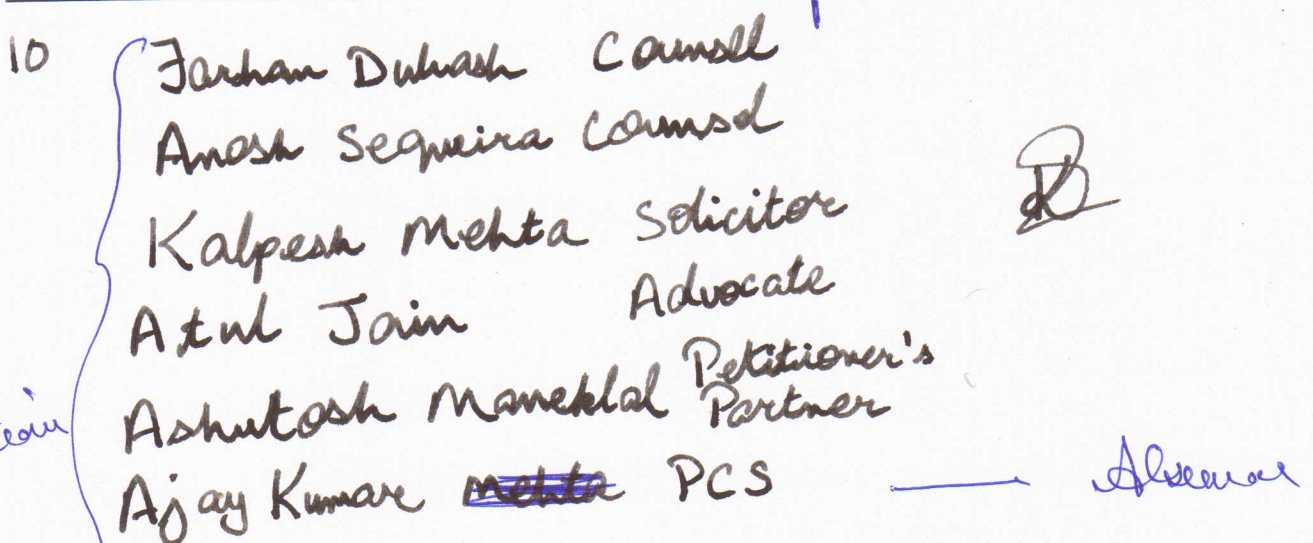 10 Farhan Dubash Counsel
Anosh Sequeira Counsel
Kalpesh Mehta Solicitor
Atul Jain Advocate
Ashutosh Maneklal Petitioner's
Partner
Ajay Kumar PCS